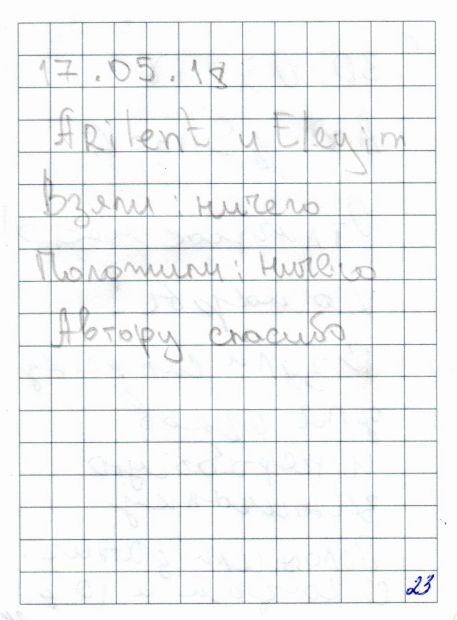 17.05.18
Arilent и Eleyim
Взяли: ничего
Положили: ничего
Автору спасибо
23